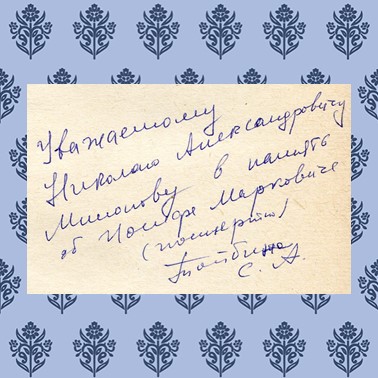 Уважаемому
Николаю Александровичу
Миронову в память
об Иосифе Марковиче
(посмертно)
С. А.